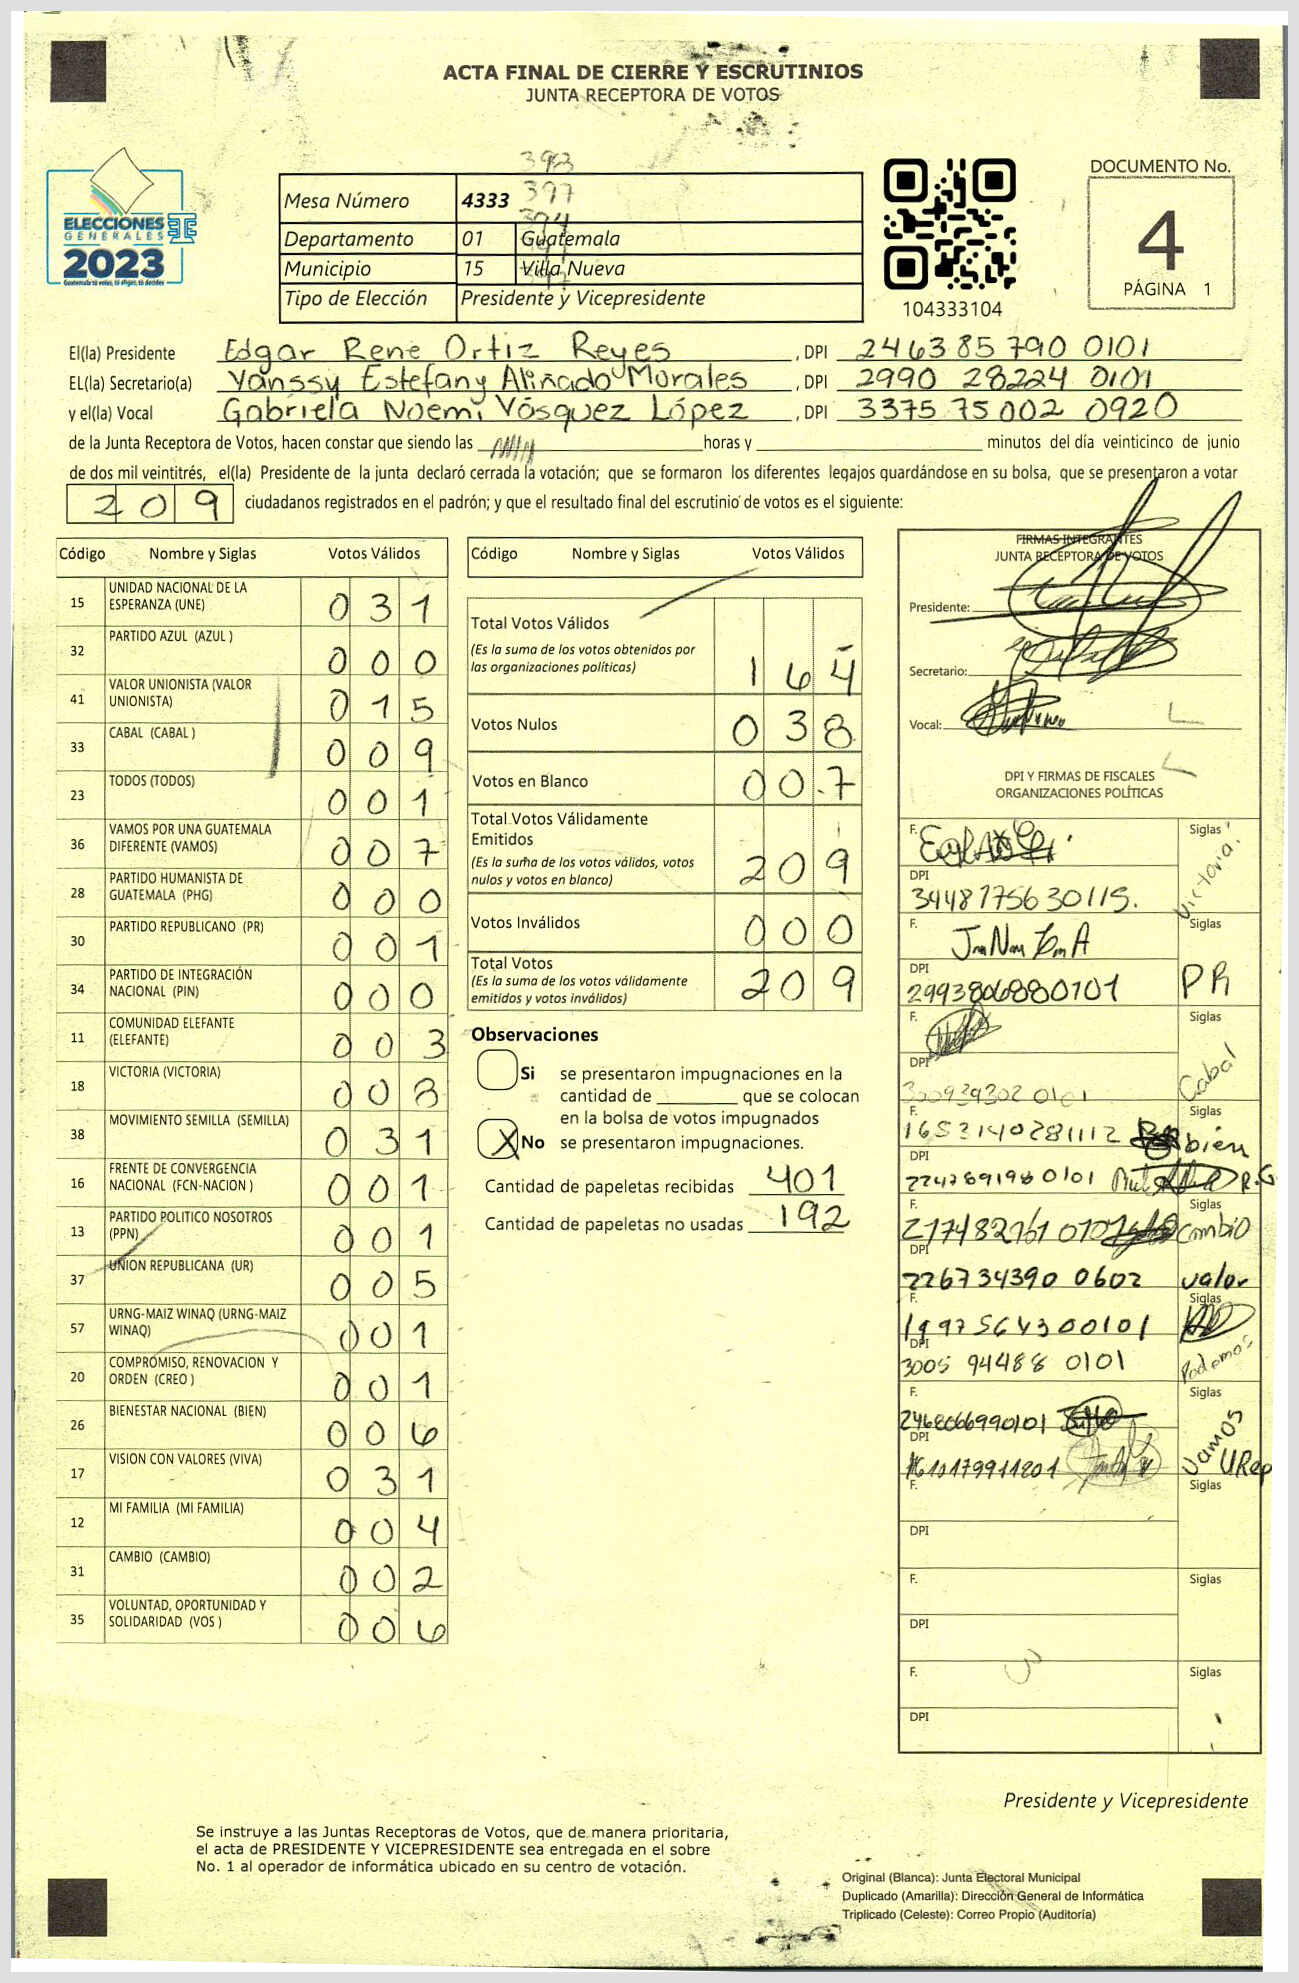 ACTA FINAL DE CIERRE Y ESCRUTINIOS
JUNTA RECEPTORA DE VOTOS
393
397
ELECCIONES
GENERALES
2023
Guatemala tú votas, tú eliges, tú decides
Mesa Número 4333
Departamento 01 Guatemala
Municipio 15 Villa Nueva
Tipo de Elección Presidente y Vicepresidente
104333104
DOCUMENTO No.
4
PÁGINA 1
El(la) Presidente Edgar Rene Ortiz Reyes, DPI 2463 85790 0101
EL(la) Secretario(a) Yanssy Estefany Aliñado Morales, DPI 2990 28224 0101
y el(la) Vocal Gabriela Noemi Vásquez López, DPI 3375 75002 0920
de la Junta Receptora de Votos, hacen constar que siendo las horas y minutos del día veinticinco de junio
de dos mil veintitrés, el(la) Presidente de la junta declaró cerrada la votación; que se formaron los diferentes legajos quardándose en su bolsa, que se presentaron a votar
209 ciudadanos registrados en el padrón; y que el resultado final del escrutinio de votos es el siguiente:
Código Nombre y Siglas Votos Válidos
15 UNIDAD NACIONAL DE LA ESPERANZA (UNE) 031
32 PARTIDO AZUL (AZUL ) 000
41 VALOR UNIONISTA (VALOR UNIONISTA) 015
33 CABAL (CABAL ) 009
23 TODOS (TODOS) 001
36 VAMOS POR UNA GUATEMALA DIFERENTE (VAMOS) 007
28 PARTIDO HUMANISTA DE GUATEMALA (PHG) 000
30 PARTIDO REPUBLICANO (PR) 001
34 PARTIDO DE INTEGRACIÓN NACIONAL (PIN) 000
11 COMUNIDAD ELEFANTE (ELEFANTE) 003
18 VICTORIA (VICTORIA) 008
38 MOVIMIENTO SEMILLA (SEMILLA) 031
16 FRENTE DE CONVERGENCIA NACIONAL (FCN-NACION ) 001
13 PARTIDO POLITICO NOSOTROS (PPN) 001
37 UNION REPUBLICANA (UR) 005
57 URNG-MAIZ WINAQ (URNG-MAIZ WINAQ) 001
20 COMPROMISO, RENOVACION Y ORDEN (CREO ) 001
26 BIENESTAR NACIONAL (BIEN) 006
17 VISION CON VALORES (VIVA) 031
12 MI FAMILIA (MI FAMILIA) 004
31 CAMBIO (CAMBIO) 002
35 VOLUNTAD, OPORTUNIDAD Y SOLIDARIDAD (VOS ) 006
Código Nombre y Siglas Votos Válidos
Total Votos Válidos 164
(Es la suma de los votos obtenidos por
las organizaciones políticas)
Votos Nulos 038
Votos en Blanco 007
Total Votos Válidamente
Emitidos 209
(Es la suma de los votos válidos, votos
nulos y votos en blanco)
Votos Inválidos 000
Total Votos 209
(Es la suma de los votos válidamente
emitidos y votos inválidos)
Observaciones
Si se presentaron impugnaciones en la
cantidad de ________ que se colocan
en la bolsa de votos impugnados
X No se presentaron impugnaciones.
Cantidad de papeletas recibidas 401
Cantidad de papeletas no usadas 192
FIRMAS INTEGRANTES
JUNTA RECEPTORA DE VOTOS
Presidente:
Secretario:
Vocal:
DPI Y FIRMAS DE FISCALES
ORGANIZACIONES POLÍTICAS
F. Siglas Victoria.
DPI 3448775630115.
F. Siglas PR
DPI 2993806880101
F. Siglas Cabal
DPI 300939302 0101
F. 1653140281112 Siglas bien
DPI 224789198 0101 R.G
F. Siglas Cambio
DPI 226734390 0602 valor
F. 1997564300101 Siglas
DPI 3005 94488 0101 Podemos
F. 2468066990101 Siglas Vamos
DPI 1610179911201 URep
F. Siglas
DPI
F. Siglas
DPI
F. Siglas
DPI
Presidente y Vicepresidente
Se instruye a las Juntas Receptoras de Votos, que de manera prioritaria,
el acta de PRESIDENTE Y VICEPRESIDENTE sea entregada en el sobre
No. 1 al operador de informática ubicado en su centro de votación.
Original (Blanca): Junta Electoral Municipal
Duplicado (Amarilla): Dirección General de Informática
Triplicado (Celeste): Correo Propio (Auditoría)